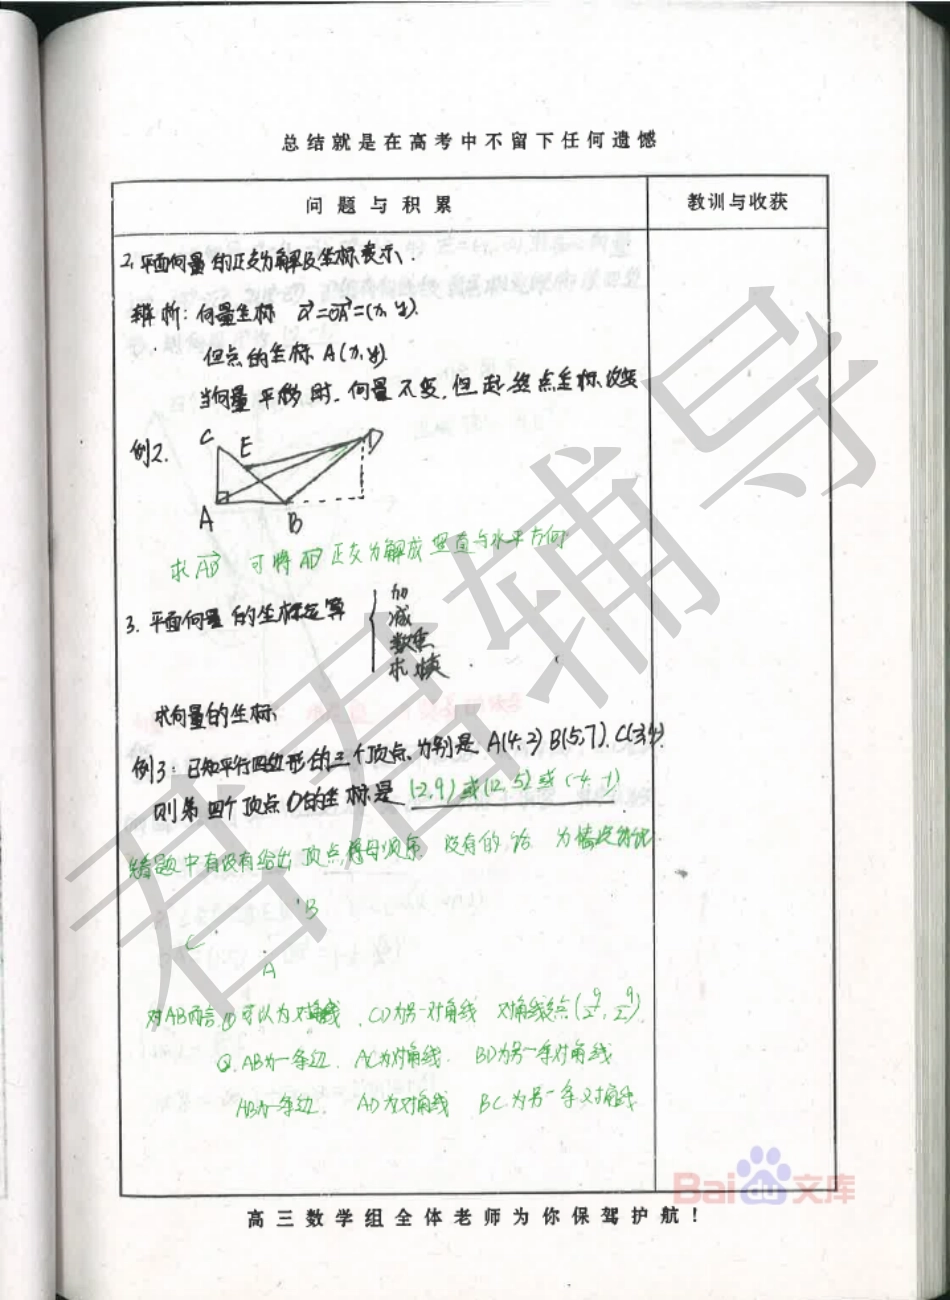 总结就是在高考中不留下任何遗憾
问题与积累 教训与收获
2. 平面向量的正交分解及坐标表示.
辨析: 向量坐标 a=OA=(x, y).
但点的坐标 A(x, y)
当向量平移时, 向量不变, 但起终点坐标改变
例2.
C E D
A B
求AD 可将AD正交分解成竖直与水平方向
3. 平面向量的坐标运算
加
减
数乘
求模
求向量的坐标
例3: 已知平行四边形的三个顶点分别是 A(4,2) B(5,7). C(-3,4).
则第四个顶点D的坐标是 (-2,9)或(12,5)或(-4,-1)
题中有没有给出顶点字母顺序 没有的话 分情况讨论.
B
C
A
对AB而言, ①可以为对角线, CD为另一对角线 对角线交点(9/2, 9/2).
②. AB为一条边. AC为对角线. BD为另一条对角线
AB为一条边. AD为对角线 BC为另一条对角线
高三数学组全体老师为你保驾护航!
君君辅导
Bai文库